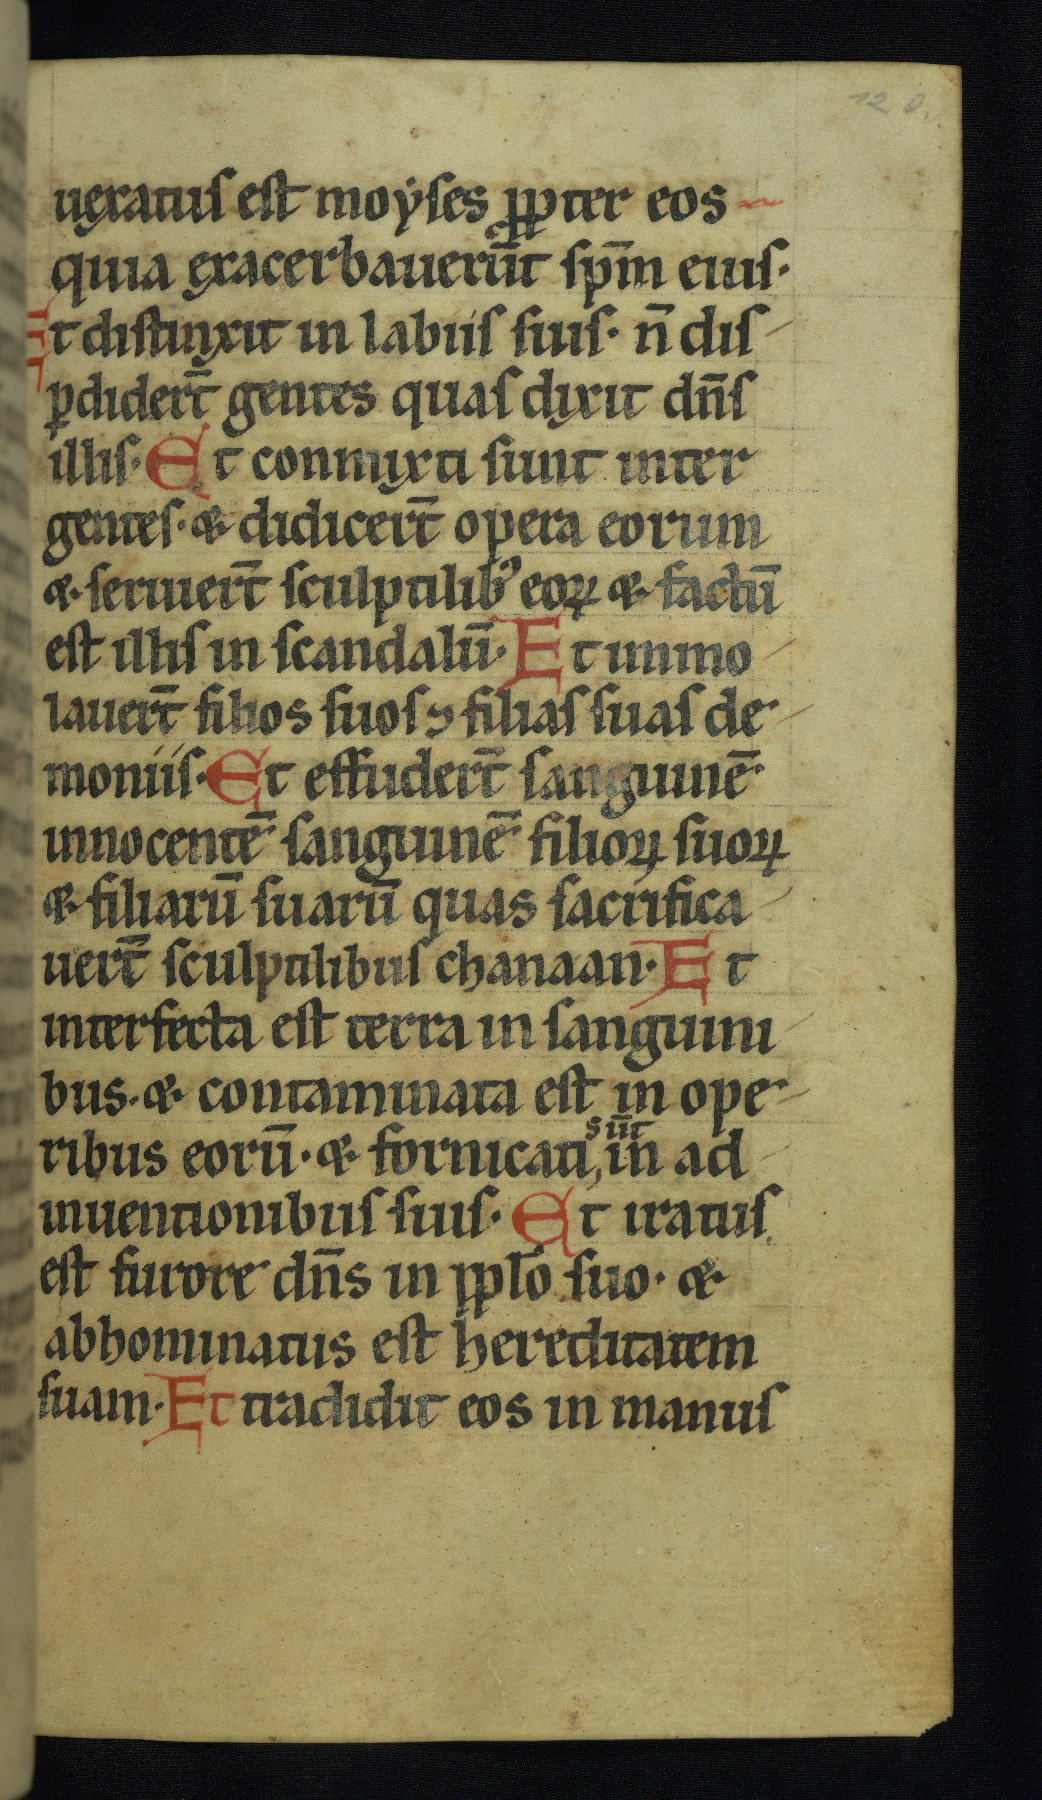 120.
uexatus est moyses ꝓpter eos
quia exacerbauerūt sp̄m eius·
Et distinxit in labiis suis· n̄ dis
ꝑdidert̄ gentes quas dixit dn̄s
illis· Et conmixti sunt inter
gentes· & didicert̄ opera eorum
& seruiert̄ sculptilibꝰ eoꝝ & factū
est illis in scandalū· Et immo
lauert̄ filios suos ⁊ filias suas de
moniis· Et effudert̄ sanguinē
innocentē sanguinē filioꝝ suoꝝ
& filiarū suarū quas sacrifica
uert̄ sculptilibus chanaan· Et
interfecta est terra in sanguini
bus· & contaminata est in ope
ribus eorū· & fornicati sūt in ad
inuentionibus suis· Et iratus
est furore dn̄s in ppl̄o suo· &
abhominatus est hereditatem
suam· Et tradidit eos in manus